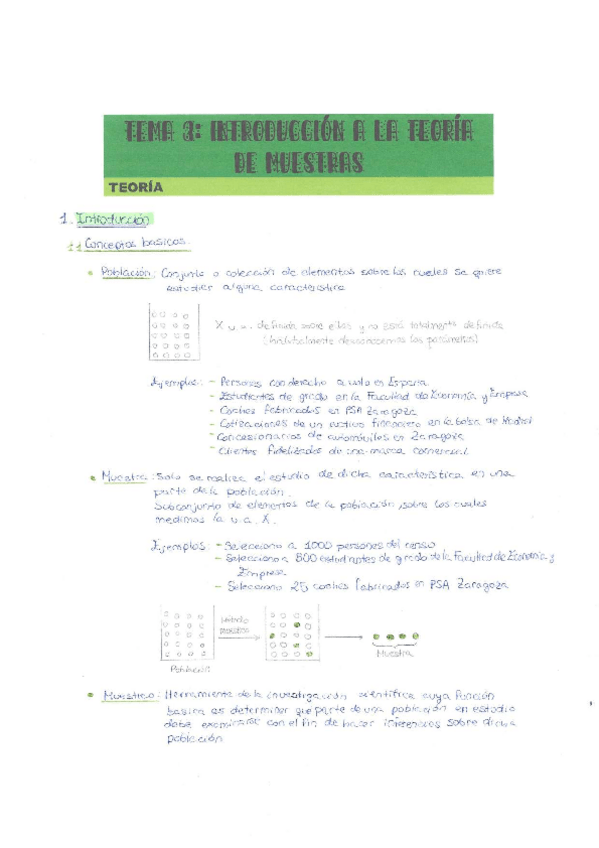 TEMA 3: INTRODUCCIÓN A LA TEORÍA
DE MUESTRAS
TEORÍA
1. Introducción
1.1 Conceptos basicos.
• Población: Conjunto o colección de elementos sobre los cuales se quiere
estudiar alguna característica
X v.a. definida sobre ellas y no está totalmente definida
(habitualmente desconocemos los parámetros)
Ejemplos: - Personas con derecho a voto en España
- Estudiantes de grado en la Facultad de Economía y Empresa
- Coches fabricados en PSA Zaragoza
- Cotizaciones de un activo financiero en la bolsa de Madrid
- Concesionarios de automóviles en Zaragoza
- Clientes fidelizados de una marca comercial
• Muestra: Solo se realiza el estudio de dicha característica en una
parte de la población.
Subconjunto de elementos de la población, sobre los cuales
medimos la v.a. X.
Ejemplos: - Selecciono a 1000 personas del censo
- Selecciono a 800 estudiantes de grado de la Facultad de Economía y
Empresa
- Selecciono 25 coches fabricados en PSA Zaragoza
Población
Muestra
• Muestreo: Herramienta de la investigación científica cuya función
basica es determinar que parte de una población en estudio
debe examinarse con el fin de hacer inferencias sobre dicha
población